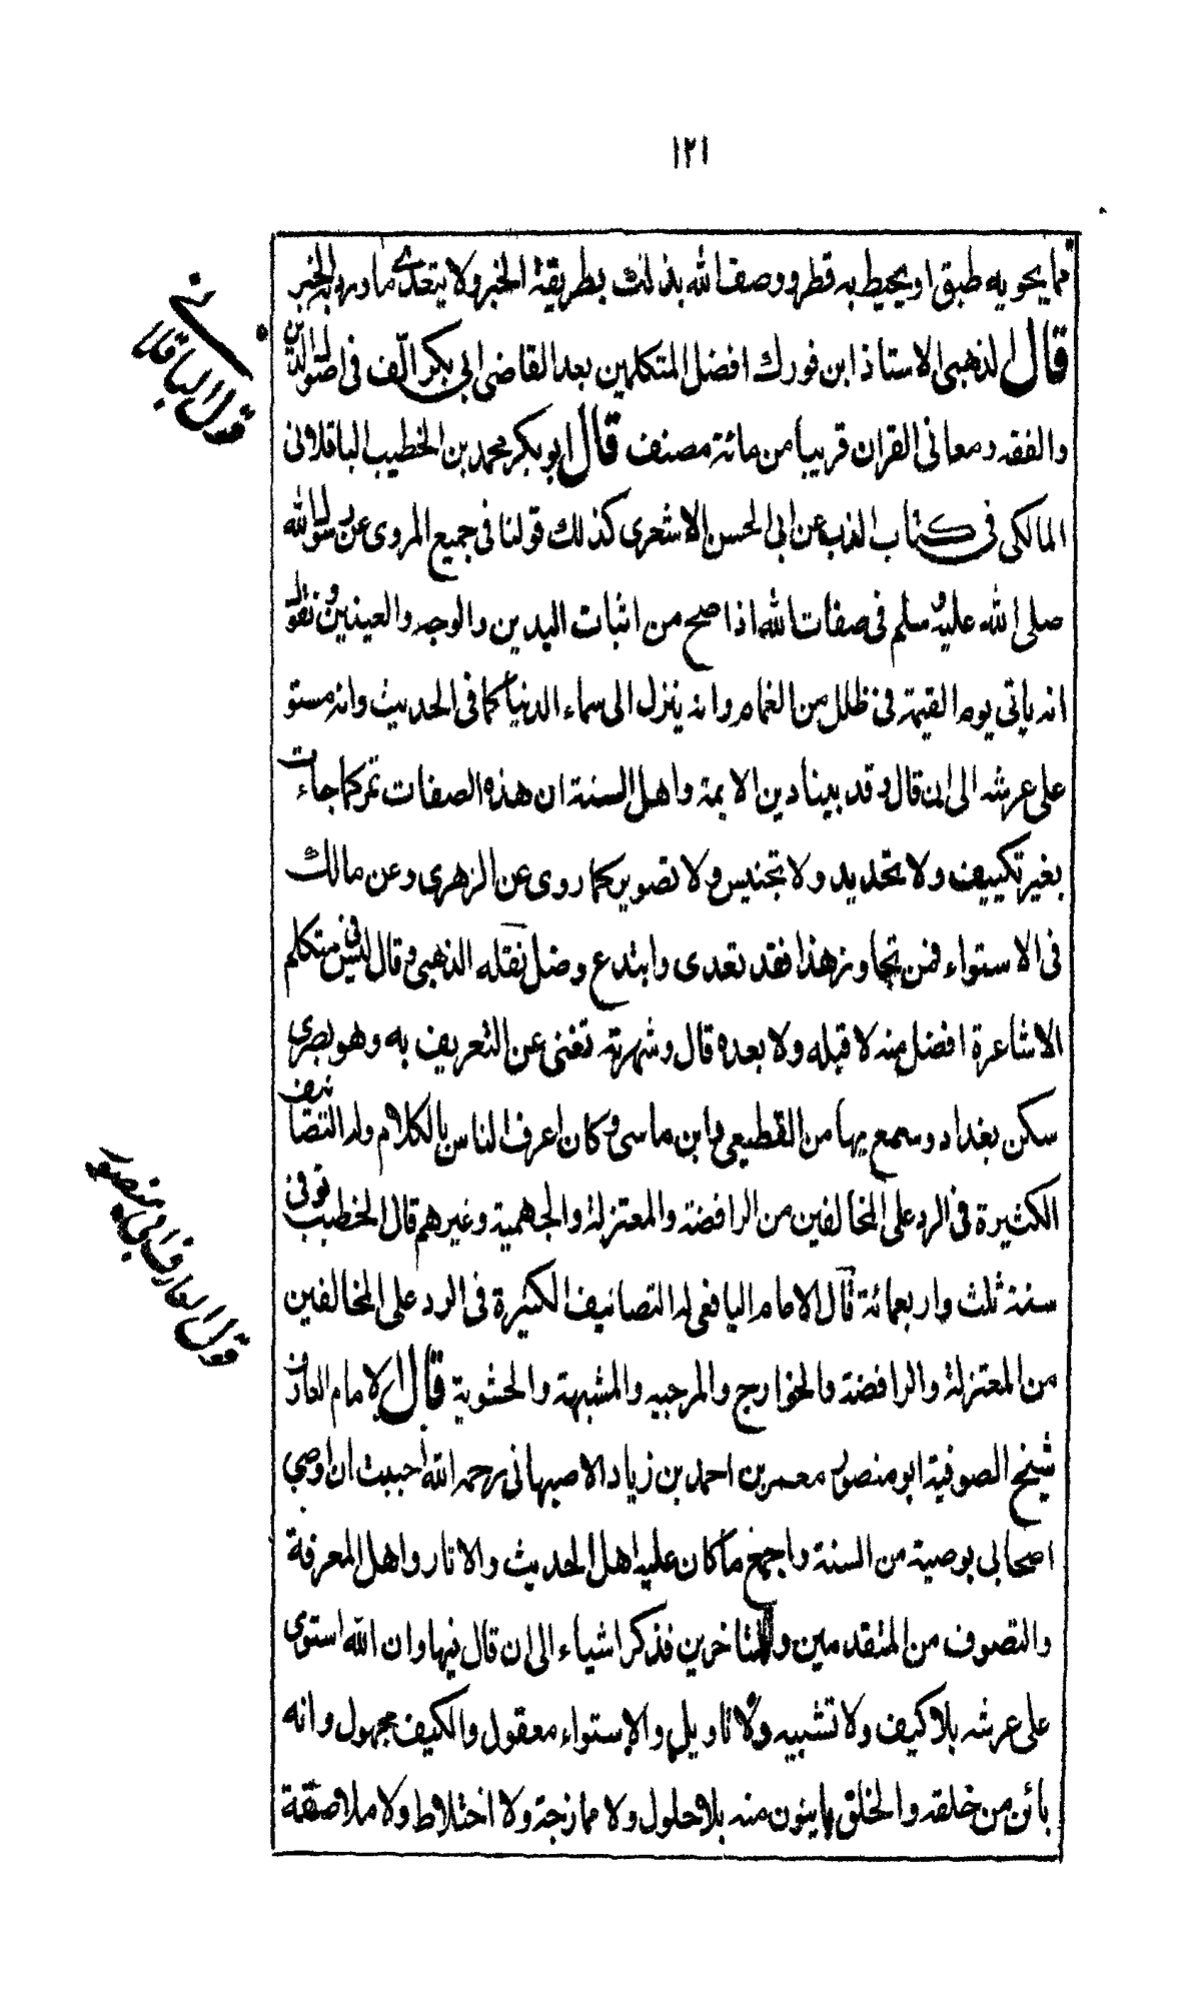 ١٢١
مما يحويه طبق او يحيط به قطر ووصفنا لله بذلك بطريقة الخبر ولا يتعدى ما ورد به الخبر
قال الذهبى الاستاذ ابن فورك افضل المتكلمين بعد القاضى ابى بكر الّف فى اصول الدين
والفقه ومعانى القران قريبا من مائة مصنف قال ابو بكر محمد بن الخطيب الباقلانى
المالكى فى كتاب الذب عن ابى الحسن الاشعرى كذلك قولنا فى جميع المروى عن رسول الله
صلى الله عليه وسلم فى صفات الله اذا صح من اثبات اليدين والوجه والعينين ونقول
انه ياتى يوم القيمة فى ظلل من الغمام وانه ينزل الى سماء الدنيا كما فى الحديث وانه مستو
على عرشه الى ان قال وقد بينا دين الايمة واهل السنة ان هذه الصفات تمر كما جاءت
بغير تكييف ولا تحديد ولا تجنيس ولا تصوير كما روى عن الزهرى وعن مالك
فى الاستواء فمن تجاوز هذا فقد تعدى وابتدع وضل نقله الذهبى وقال ليس فى متكلم
الاشاعرة افضل منه لا قبله ولا بعده قال وشهرته تغنى عن التعريف به وهو بصرى
سكن بغداد وسمع بها من القطيعى وابن ماسى وكان اعرف الناس بالكلام وله التصانيف
الكثيرة فى الرد على المخالفين من الرافضة والمعتزلة والجهمية وغيرهم قال الخطيب توفى
سنة ثلث واربعمائة قال الامام اليافعى له التصانيف الكثيرة فى الرد على المخالفين
من المعتزلة والرافضة والخوارج والمرجيه والمشبهة والحشوية قال الامام العارف
شيخ الصوفية ابو منصور معمر بن احمد بن زياد الاصبهانى رحمه الله احببت ان اوصى
اصحابى بوصية من السنة واجمع ما كان عليه اهل الحديث والاثار واهل المعرفة
والتصوف من المتقدمين والمتاخرين فذكر اشياء الى ان قال فيها وان الله استوى
على عرشه بلا كيف ولا تشبيه ولا تاويل والاستواء معقول والكيف مجهول وانه
بائن من خلقه والخلق باينون منه بلا حلول ولا ممازجة ولا اختلاط ولا ملاصقة
قول الباقلانى
قول العارف ابى منصور